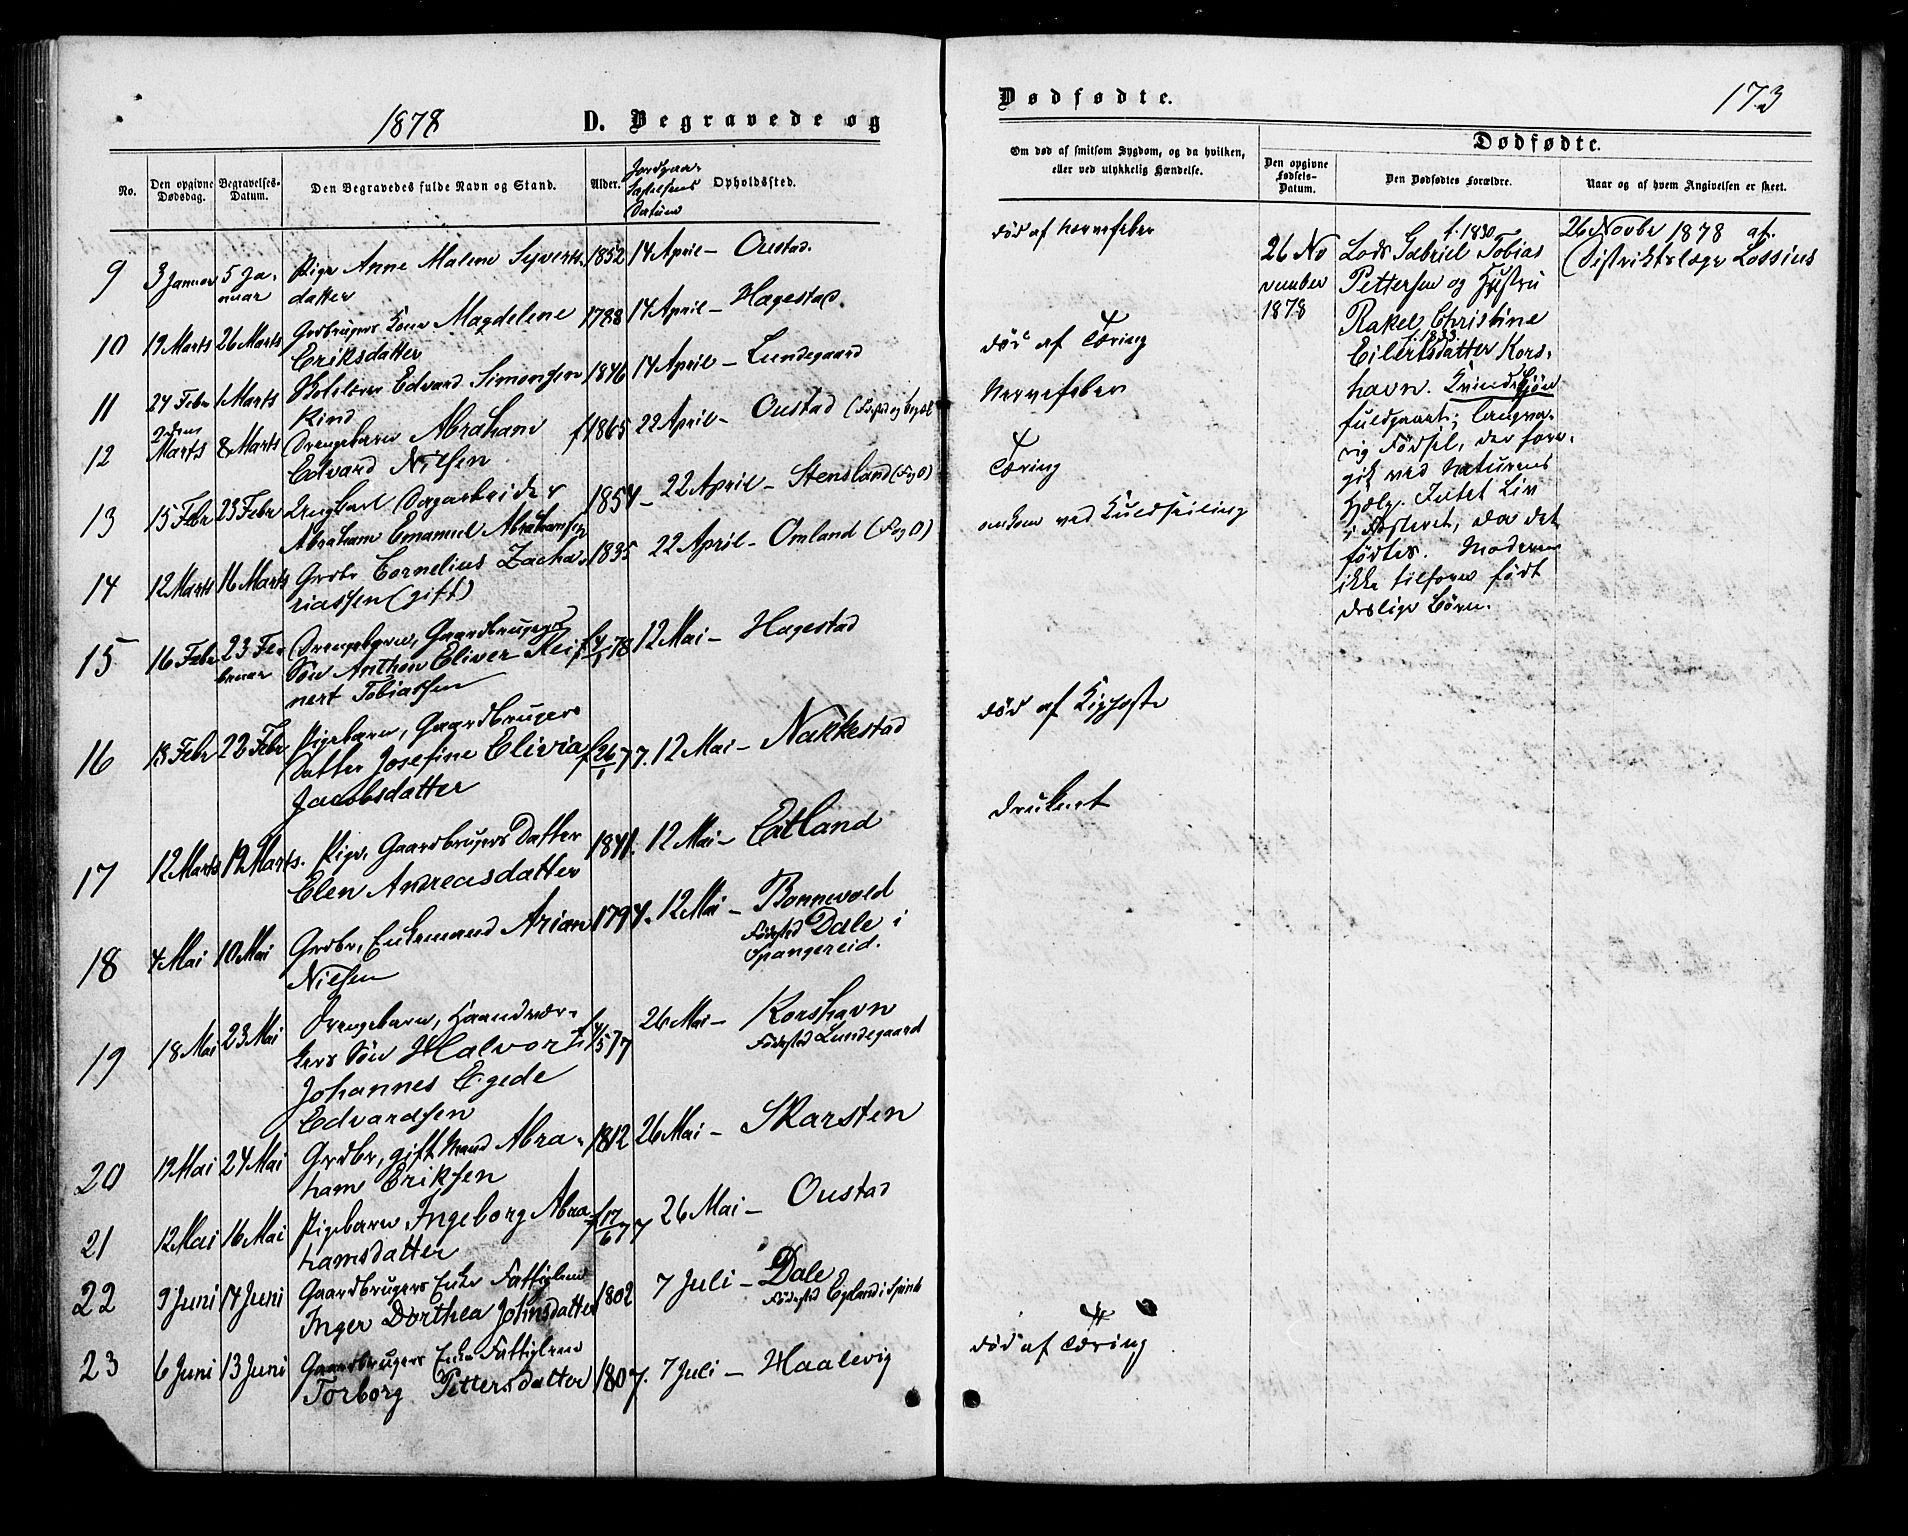 1878
D. Begravede og
No.
Den opgivne Dødsdag.
Begravelses-Datum.
Den Begravedes fulde Navn og Stand.
Alder.
Jordpaakastelsens Datum
Opholdssted.
9 3 Januar 5 Januar Pige Anne Malene Syverts- 1852 14 April – Oustad.
datter
10 19 Marts 26 Marts Grdbrugers Kone Magdelene 1788 14 April – Hagestad.
Eriksdatter
11 24 Febr 1 Marts Edvard Simonsen 1846 14 April – Lundegaard
12 2den Marts 8 Marts Drengebarn Abraham f 1865 22 April – Oustad
Edvard Nilsen
13 15 Febr 23 Febr Ungkarl Dagarbeider 1854 – 22 April – Stensland (F og O)
Abraham Emanuel Abrahamsen
14 12 Marts 16 Marts Grdbr Cornelius Zacha- 1835 22 April – Omland (F og O)
riassen (gift)
15 16 Febr 23 Februar Drengebarn, Gaardbrugers f 4/1 78 12 Mai – Hagestad
Søn Anthon Eliver Rei-
nert Tobiassen
16 13 Febr 22 Febr Pigebarn, Gaardbrugers f 26/1 77. 12 Mai – Nakkestad
Datter Josefine Elivia
Jacobsdatter
17 12 Marts 19 Marts. Pige, Gaardbrugers Datter 1841. 12 Mai – Eatland
Elen Andreasdatter
18 4 Mai 10 Mai Grdbr, Enkemand Arian 1794. 12 Mai – Bonnevold
Nielsen Fødested Dale i
Spangereid.
19 18 Mai 23 Mai Drengebarn, Haandvær- f 4/5 77 26 Mai – Korshavn
kers Søn Halvor Fødested Lundegaard
Johannes Egede
Edvardsen
20 19 Mai 24 Mai Grdbr, gift Mand Abra- 1812 26 Mai – Skarsten
ham Eriksen
21 12 Mai 16 Mai Pigebarn Ingeborg Abra- f 17/6 77 26 Mai – Oustad
hamsdatter
22 9 Juni 14 Juni Gaardbrugers Enke Fattiglem 1802 7 Juli – Dale
Inger Dorthea Johnsdatter Fødested
23 6 Juni 13 Juni Gaardbrugers Enke Fattiglem 1807. 7 Juli – Haalevig
Torborg Pettersdatter
Dødfødte.
173
Om død af smitsom Sygdom, og da hvilken,
eller ved ulykkelig Hændelse.
Dødfødte.
Den opgivne Fødsels-Datum.
Den Dødfødtes Forældre.
Naar og af hvem Angivelsen er skeet.
død af Nervefeber
død af Tæring
Nervefeber
Tæring
omkom ved Kuldseiling
død af Kighoste
druknet
død af Tæring
26 No
vember
1878
f. 1830
Lods Gabriel Tobias
Pettersen og Hustru
Rakel Christine
f. 1833
Eilertsdatter Kors-
havn. Kvindekjøn
fuldgaaet; langva-
rig Fødsel, der fore-
gik ved Naturens
Hjælp. Intet Liv
i Fosteret, da det
fødtes. Moderen
ikke tilforn født
deslige Børn.
26 Novbr 1878 af
Distriktslæge Lossius